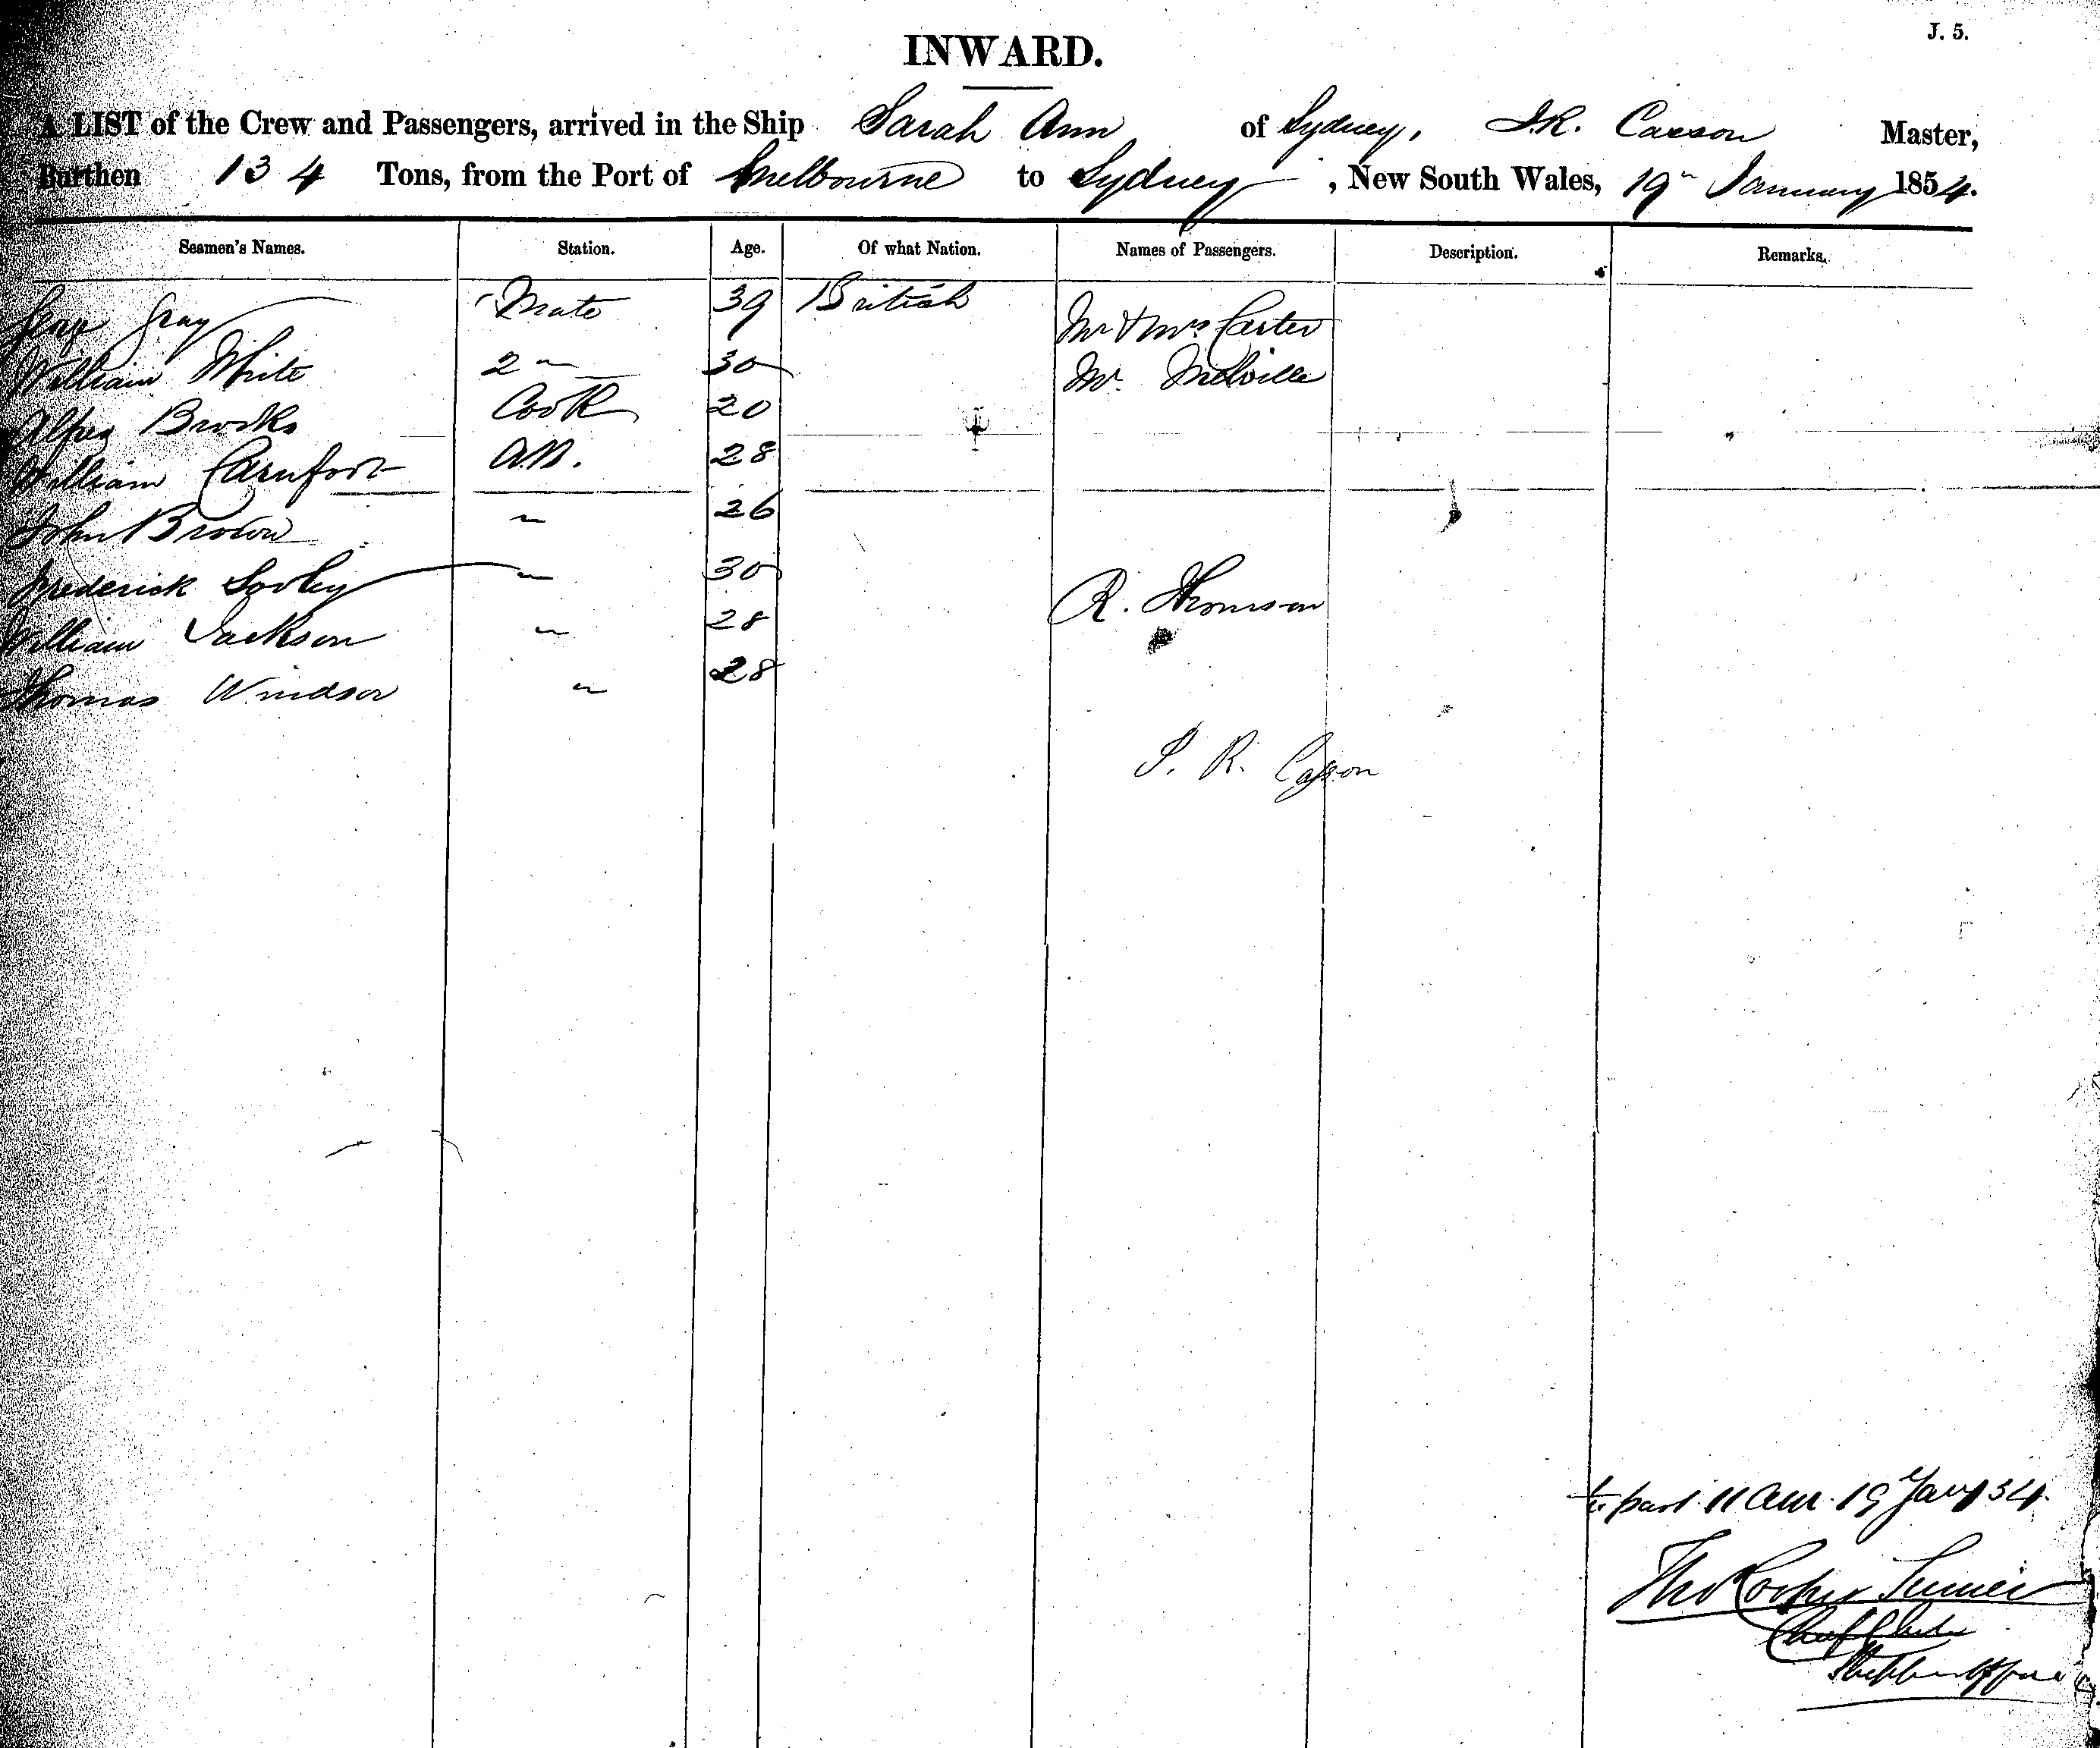 J. 5.
INWARD.
A LIST of the Crew and Passengers, arrived in the Ship Sarah Ann of Sydney, J.R. Casson Master,
Burthen 134 Tons, from the Port of Melbourne to Sydney, New South Wales, 19" January 1854.
Seamen's Names. Station. Age. Of what Nation. Names of Passengers. Description. Remarks.
Gray Mate 39 British Mr & Mrs Carter
William White 2 " 30 Mr Melville
Alfred Brooks Cook 20
William Carnfort A.B. 28
John Brown " 26
Frederick " 30 R. Thomson
William Jackson " 28
Thomas Windsor " 28
J. R. Casson
past 11 am 19 Jany 54.
Tho
Chief Clerk
Shipping Office